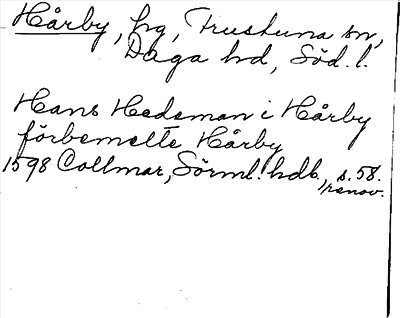 Hårby, frg, Frustuna sn,
Daga hd, Söd. l.
Hans Hedeman i Hårby
förbemelte Hårby
1598 Collmar, Sörml. hdb., s. 58.
renov.